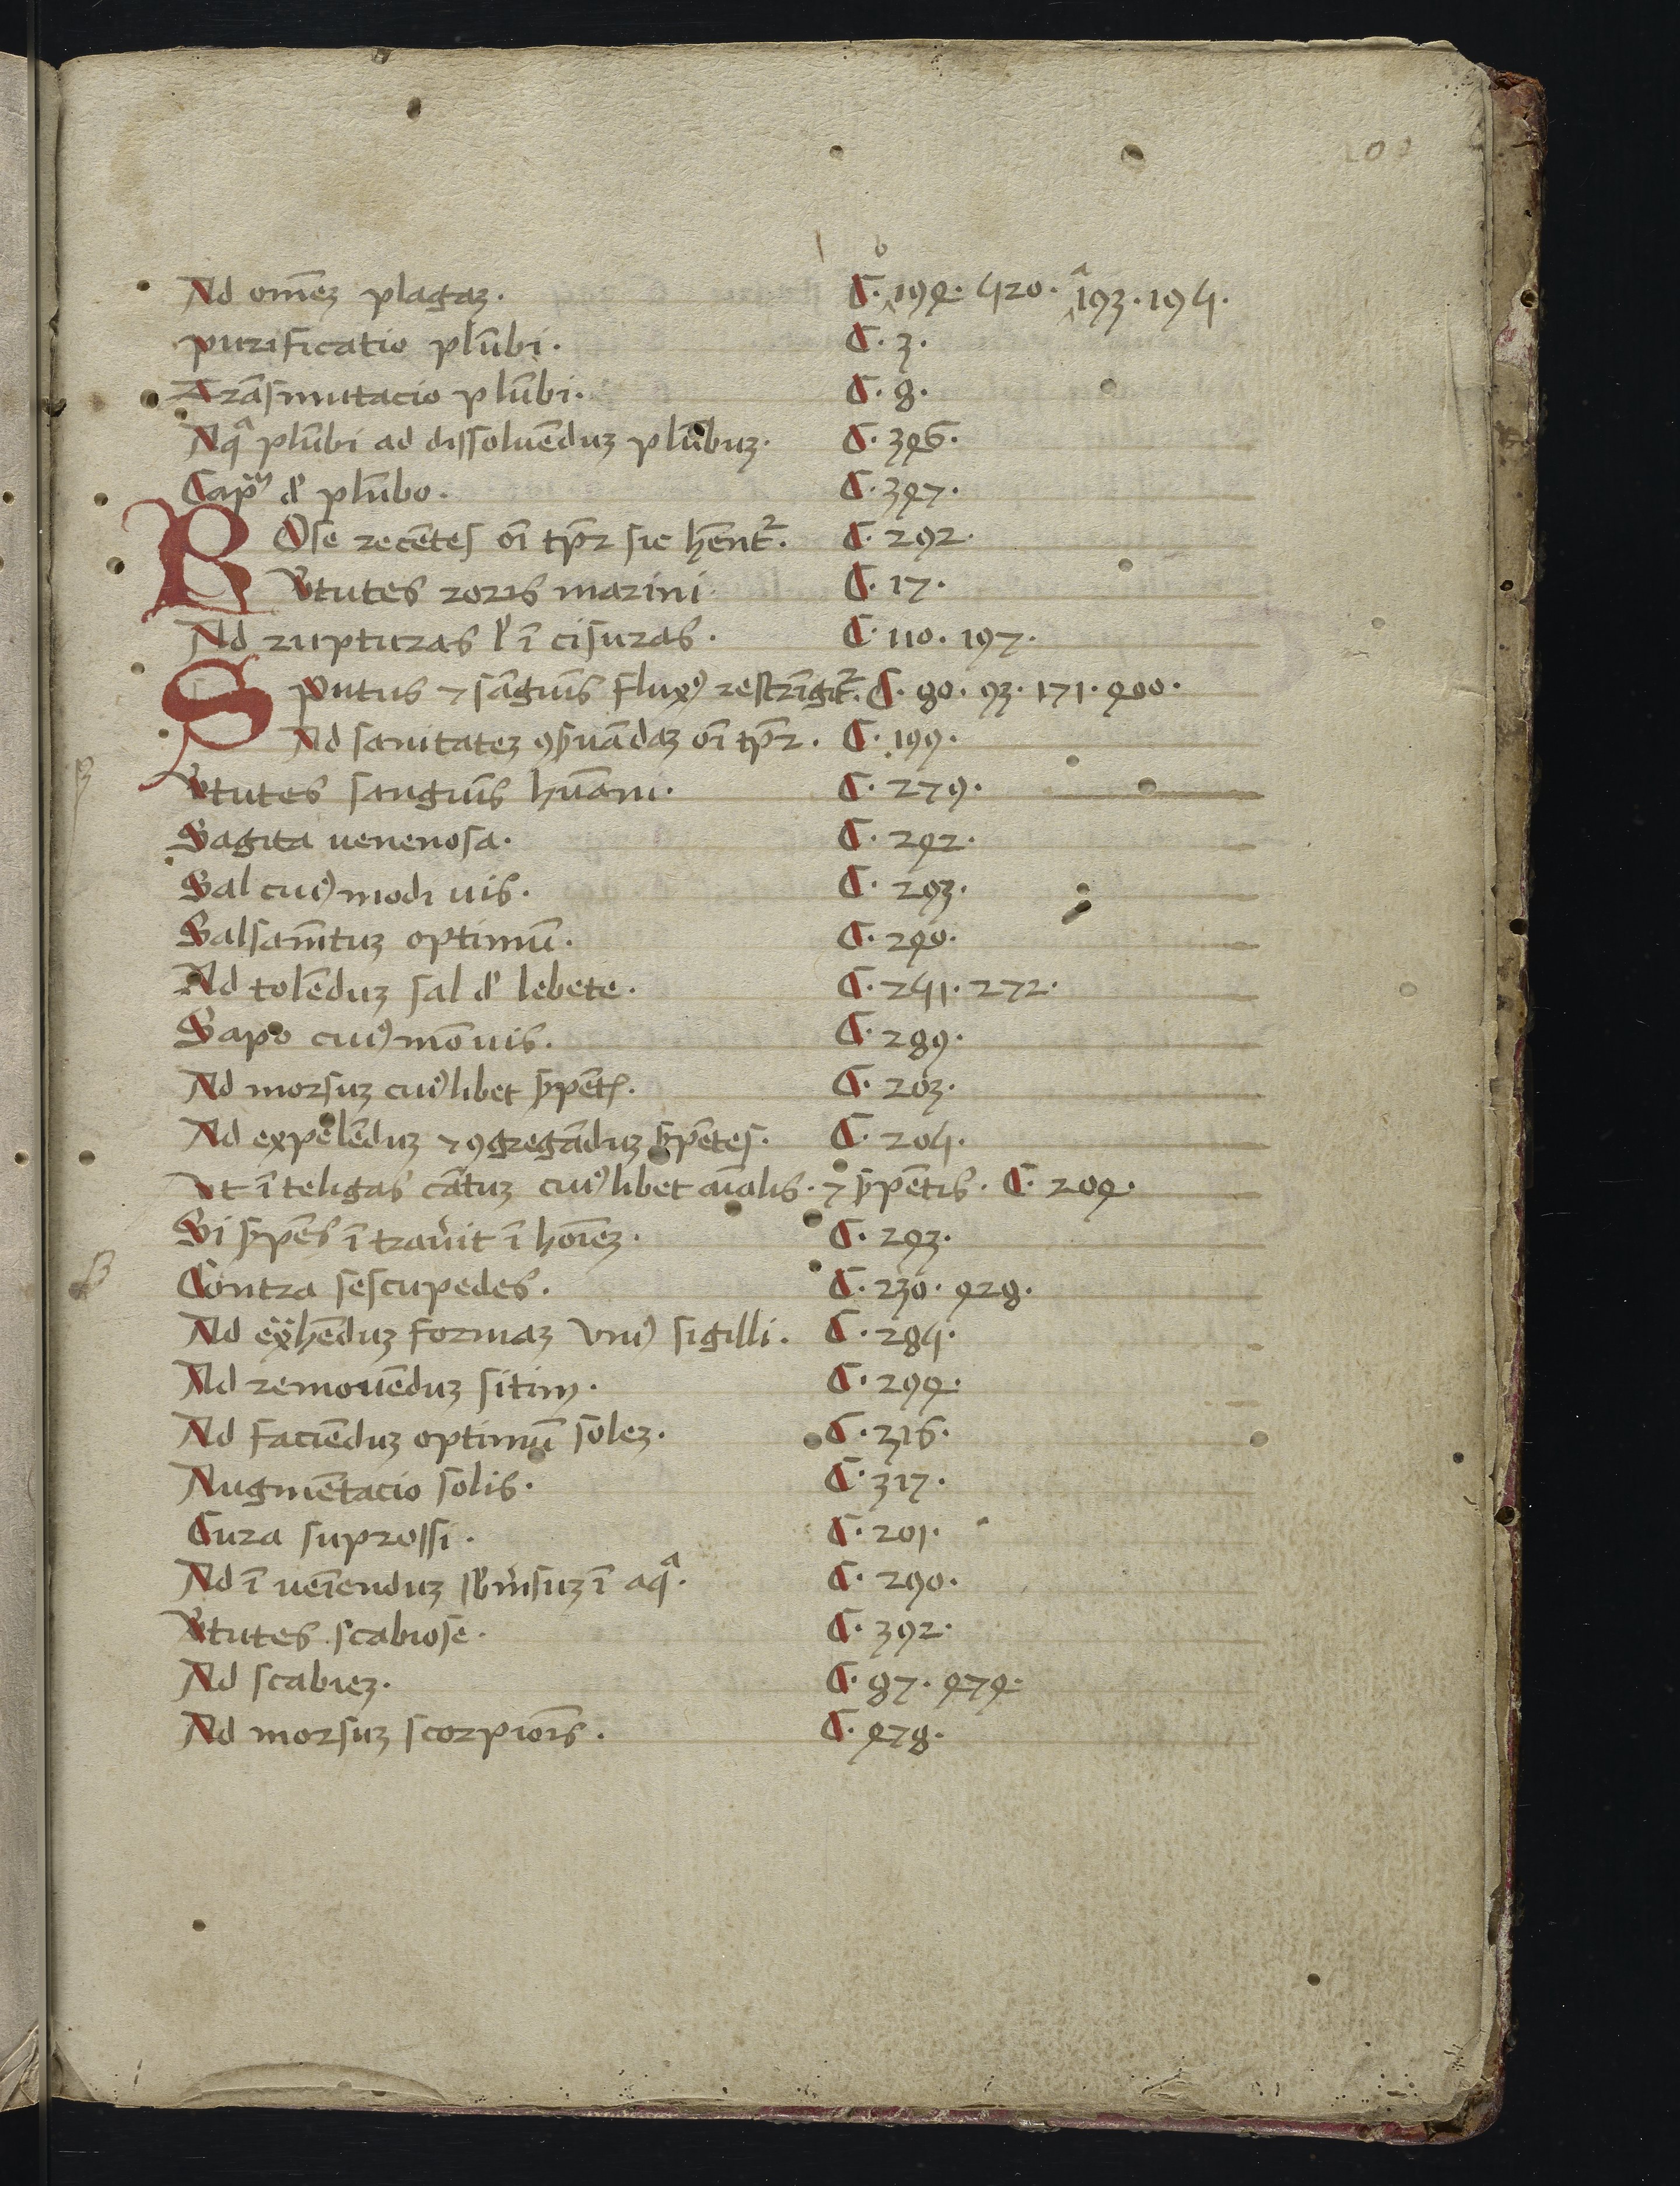 Ad om̄eꝫ plagaꝫ. C. 195. 420. 193. 194.
purificatio plūbi. C. 3.
Trāsmutacio plūbi. C. 8.
Aqᵃ plūbi ad dissoluēduꝫ plūbuꝫ. C. 356.
Capᵐ d' plūbo. C. 357.
ROse recētes oī tp̄r sic hēnt². C. 292.
V̓tutes roris marini C. 17.
Ad rupturas ł ī cisuras. C. 110. 197.
Sputus ⁊ sāguīs fluxꝰ restrīgit². C. 80. 93. 171. 500.
Ad sanitateꝫ ꝯẜuādaꝫ oī tp̄r. C. 199.
V̓tutes sanguīs huāni. C. 279.
Sagita uenenosa. C. 252.
Sal cuiꝰmodi uis. C. 293.
Salsam̄tuꝫ optimū. C. 250.
Ad tolēduꝫ sal d' lebete. C. 241. 272.
Sapo cuiꝰmōuis. C. 289.
Ad morsuꝫ cuiꝰlibet ẜpētꝭ. C. 203.
Ad expelēduꝫ ⁊ ꝯgregāduꝫ ẜpētes. C. 204.
Vt īteligas cātuꝫ cuiꝰlibet aīalis. ⁊ ẜpētis. C. 205.
Si ẜpēs ītrau̓it ī hoīeꝫ. C. 253.
Contra sescupedes. C. 230. 528.
Ad ex̎hēduꝫ formaꝫ vniꝰ sigilli. C. 284.
Ad remouēduꝫ sitim. C. 295.
Ad faciēduꝫ optimū soleꝫ. C. 316.
Augmētacio solis. C. 317.
Cura suprossi. C. 201.
Ad ī ueīenduꝫ sb̓m̓suꝫ ī aqᵃ. C. 290.
V̓tutes scabiose. C. 392.
Ad scabieꝫ. C. 87. 575.
Ad morsuꝫ scorpioīs. C. 578.